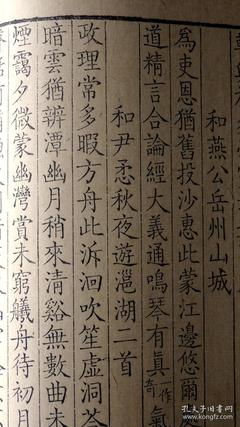 和燕公岳州山城
為吏恩猶舊投沙惠此蒙江邊悠爾
道精言合論經大義通鳴琴有真一作奇氣
和尹懋秋夜遊灉湖二首
政理常多暇方舟此泝洄吹笙虛洞荅
暗雲猶辨潭幽月稍來清谿無數曲未
煙靄夕微蒙幽灣賞未窮艤舟待初月
孔夫子旧书网